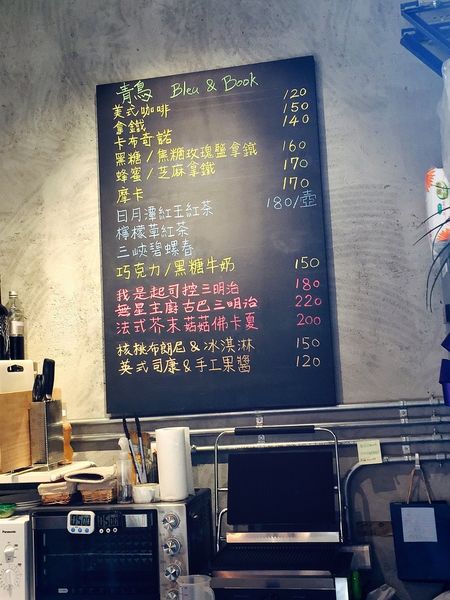 青鳥 Bleu & Book
美式咖啡 120
拿鐵 150
卡布奇諾 140
黑糖/焦糖玫瑰鹽拿鐵 160
蜂蜜/芝麻拿鐵 170
摩卡 170
日月潭紅玉紅茶 180/壺
檸檬草紅茶
三峽碧螺春
巧克力/黑糖牛奶 150
我是起司控三明治 180
無星主廚古巴三明治 220
法式芥末菇菇佛卡夏 200
核桃布朗尼&冰淇淋 150
英式司康&手工果醬 120
Panasonic